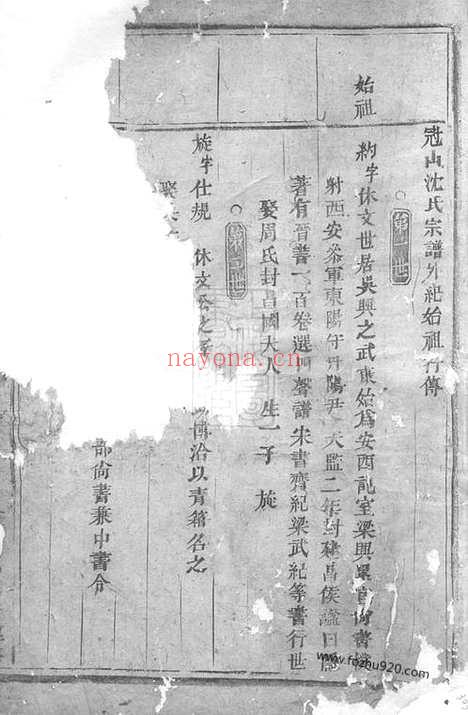 冠山沈氏宗譜外紀始祖行傳
第一世
始祖
約字休文世居吳興之武康始爲安西記室梁興累官尚書
射西安參軍東陽守丹陽尹天監二年封建昌侯諡曰隱
著有晉書一百卷選四聲譜宋書齊紀梁武紀等書行世
娶周氏封昌國夫人 生一子 旋
第二世
旋字仕規 休文公之子
博洽以青箱名之
部尚書兼中書令
nayona.cn
www.fozhu920.com